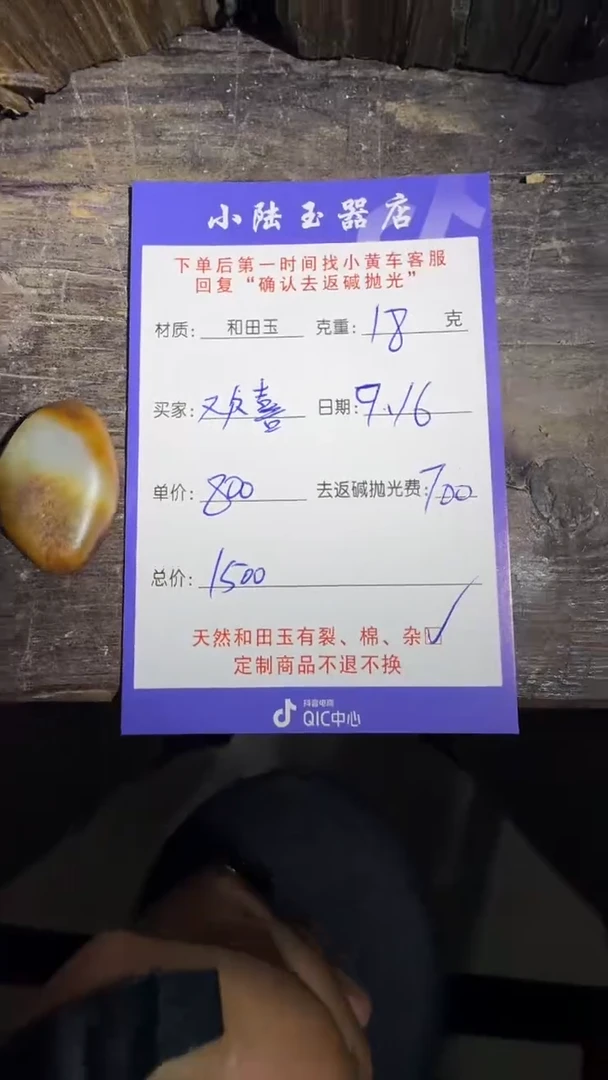 小陆玉器店
下单后第一时间找小黄车客服
回复“确认去返碱抛光”
材质: 和田玉 克重: 18 克
买家: 双喜 日期: 9.16
单价: 800 去返碱抛光费: 700
总价: 1500
天然和田玉有裂、棉、杂
定制商品不退不换
抖音电商
QIC中心